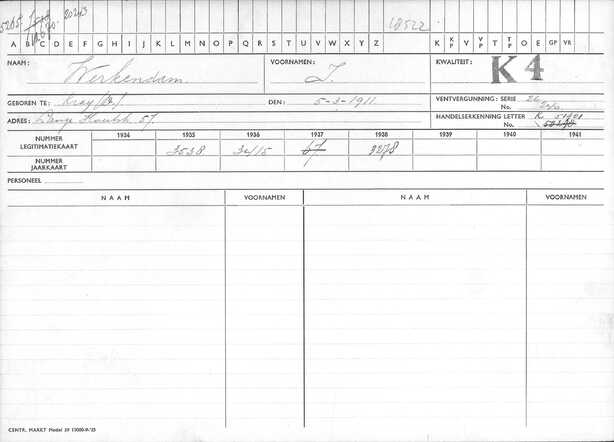 20243
18522
A B C D E F G H I J K L M N O P Q R S T U V W X Y Z K K/P V V/P T T/P O E GP VR
NAAM: Werkendam VOORNAMEN: I. KWALITEIT: K 4
GEBOREN TE: DEN: 5-3-1911 VENTVERGUNNING: SERIE 26
No.
ADRES: Lange Houtstr 57 HANDELSERKENNING LETTER K 51401
No.
1934 1935 1936 1937 1938 1939 1940 1941
NUMMER LEGITIMATIEKAART 3538 3415 67 3378
NUMMER JAARKAART
PERSONEEL
NAAM VOORNAMEN NAAM VOORNAMEN
CENTR. MARKT Model 39 15000-9-'35